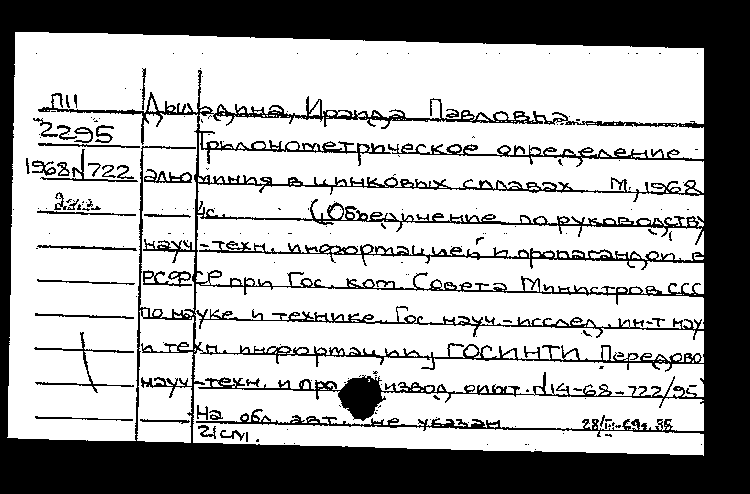 П11
Дылдина, Ираида Павловна.
2295
Трилонометрическое определение
1968 N 722
алюминия в цинковых сплавах М., 1968
4с. (Объединение по руководству
науч-техн. информацией и пропагандой в
РСФСР при Гос. ком. Совета Министров ССС
по науке и технике. Гос. науч.-исслед. ин-т нау
и техн. информации, ГОСИНТИ. Передово
науч-техн. и про извод. опыт. N 14-68-722/95)
На обл. авт. не указан
21см.